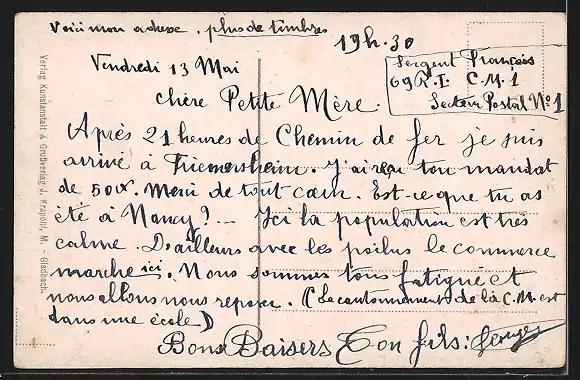 Voici mon adresse, plus de timbres
19h.30
Vendredi 13 Mai
Sergent François
69 R.I. C.M.1
Secteur Postal N° 1
Chère Petite Mère.
Après 21 heures de Chemin de fer je suis
arrivé à Friemersheim. J'ai reçu ton mandat
de 50f. Merci de tout cœur. Est-ce que tu as
été à Nancy? — Ici la population est très
calme. D'ailleurs avec les poilus le commerce
marche ici. Nous sommes tous fatigué et
nous allons nous reposer. (Le cantonnement de la C.M. est
dans une école)
Bons Baisers Ton fils:
Verlag Kunstanstalt & Großverlag J. Krapohl, M.-Gladbach.